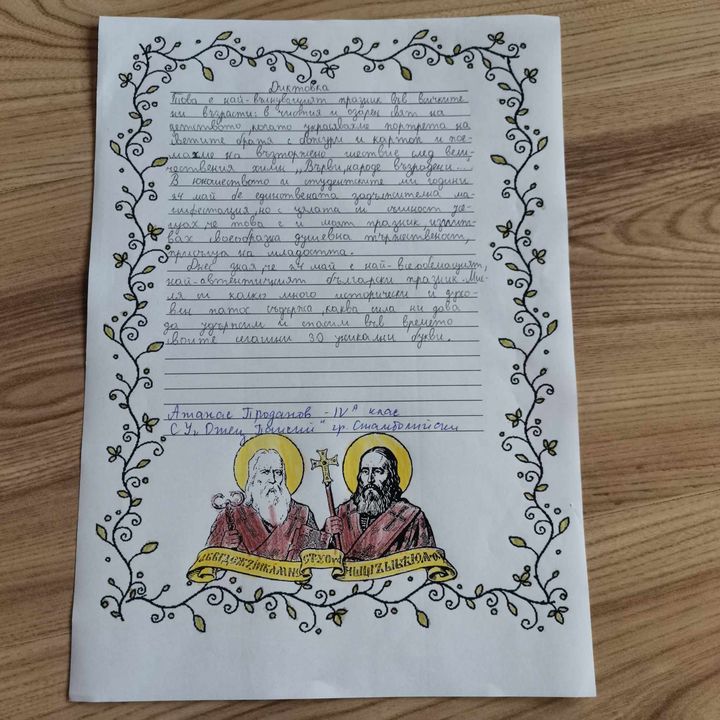 Диктовка
Това е най-вълнуващият празник във всичките
ни възрасти: в чистия и озарен свят на
детството, когато украсявахме портрета на
светите братя с божури и картон и пое-
махме на възторжено шествие след вели-
чествения химн „Върви, народе възродени...
В юношеството и студентските ми години
24 май бе единствената задължителна ма-
нифестация, но с цялата си същност усе-
щах, че това е и моят празник, изпит-
вах своеобразна душевна тържественост,
присъща на младостта.
Днес зная, че 24 май е най-всеобемащият,
най-автентичният български празник. Мис-
ля си колко много исторически и духо-
вен патос съдържа каква сила ни дава
да удържим и спасим във времето
своите сегашни 30 уникални букви.
Атанас Проданов - IV А клас
СУ „Отец Паисий" гр. Стамболийски